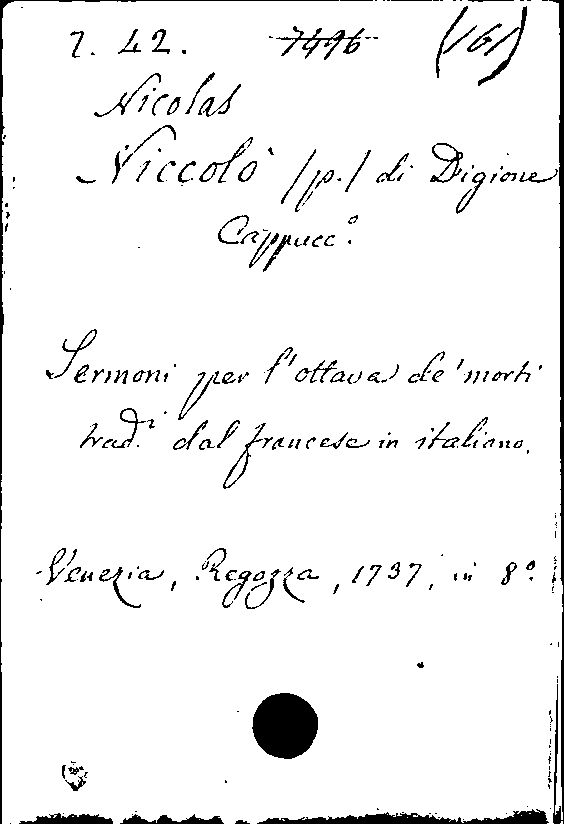 2. 42. 7496 (161)
Nicolas
Niccolò /p./ di Digione
Cappucc.º
Sermoni per l'ottava de' morti
trad.i dal francese in italiano.
Venezia, Regozza, 1737, in 8º.